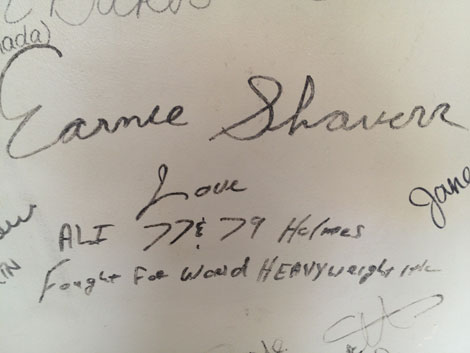 nada)
Earnie Shavers
Love
Jane
ALI 77 & 79 Holmes
Fought For World HEAVYweight title